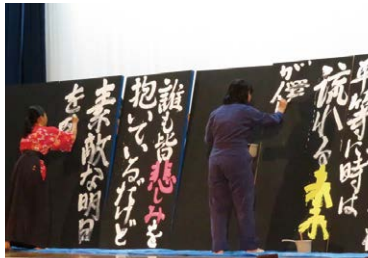 平等に時は
流れる
が
誰も皆悲しみを
抱いているだけど
素敵な明日
を